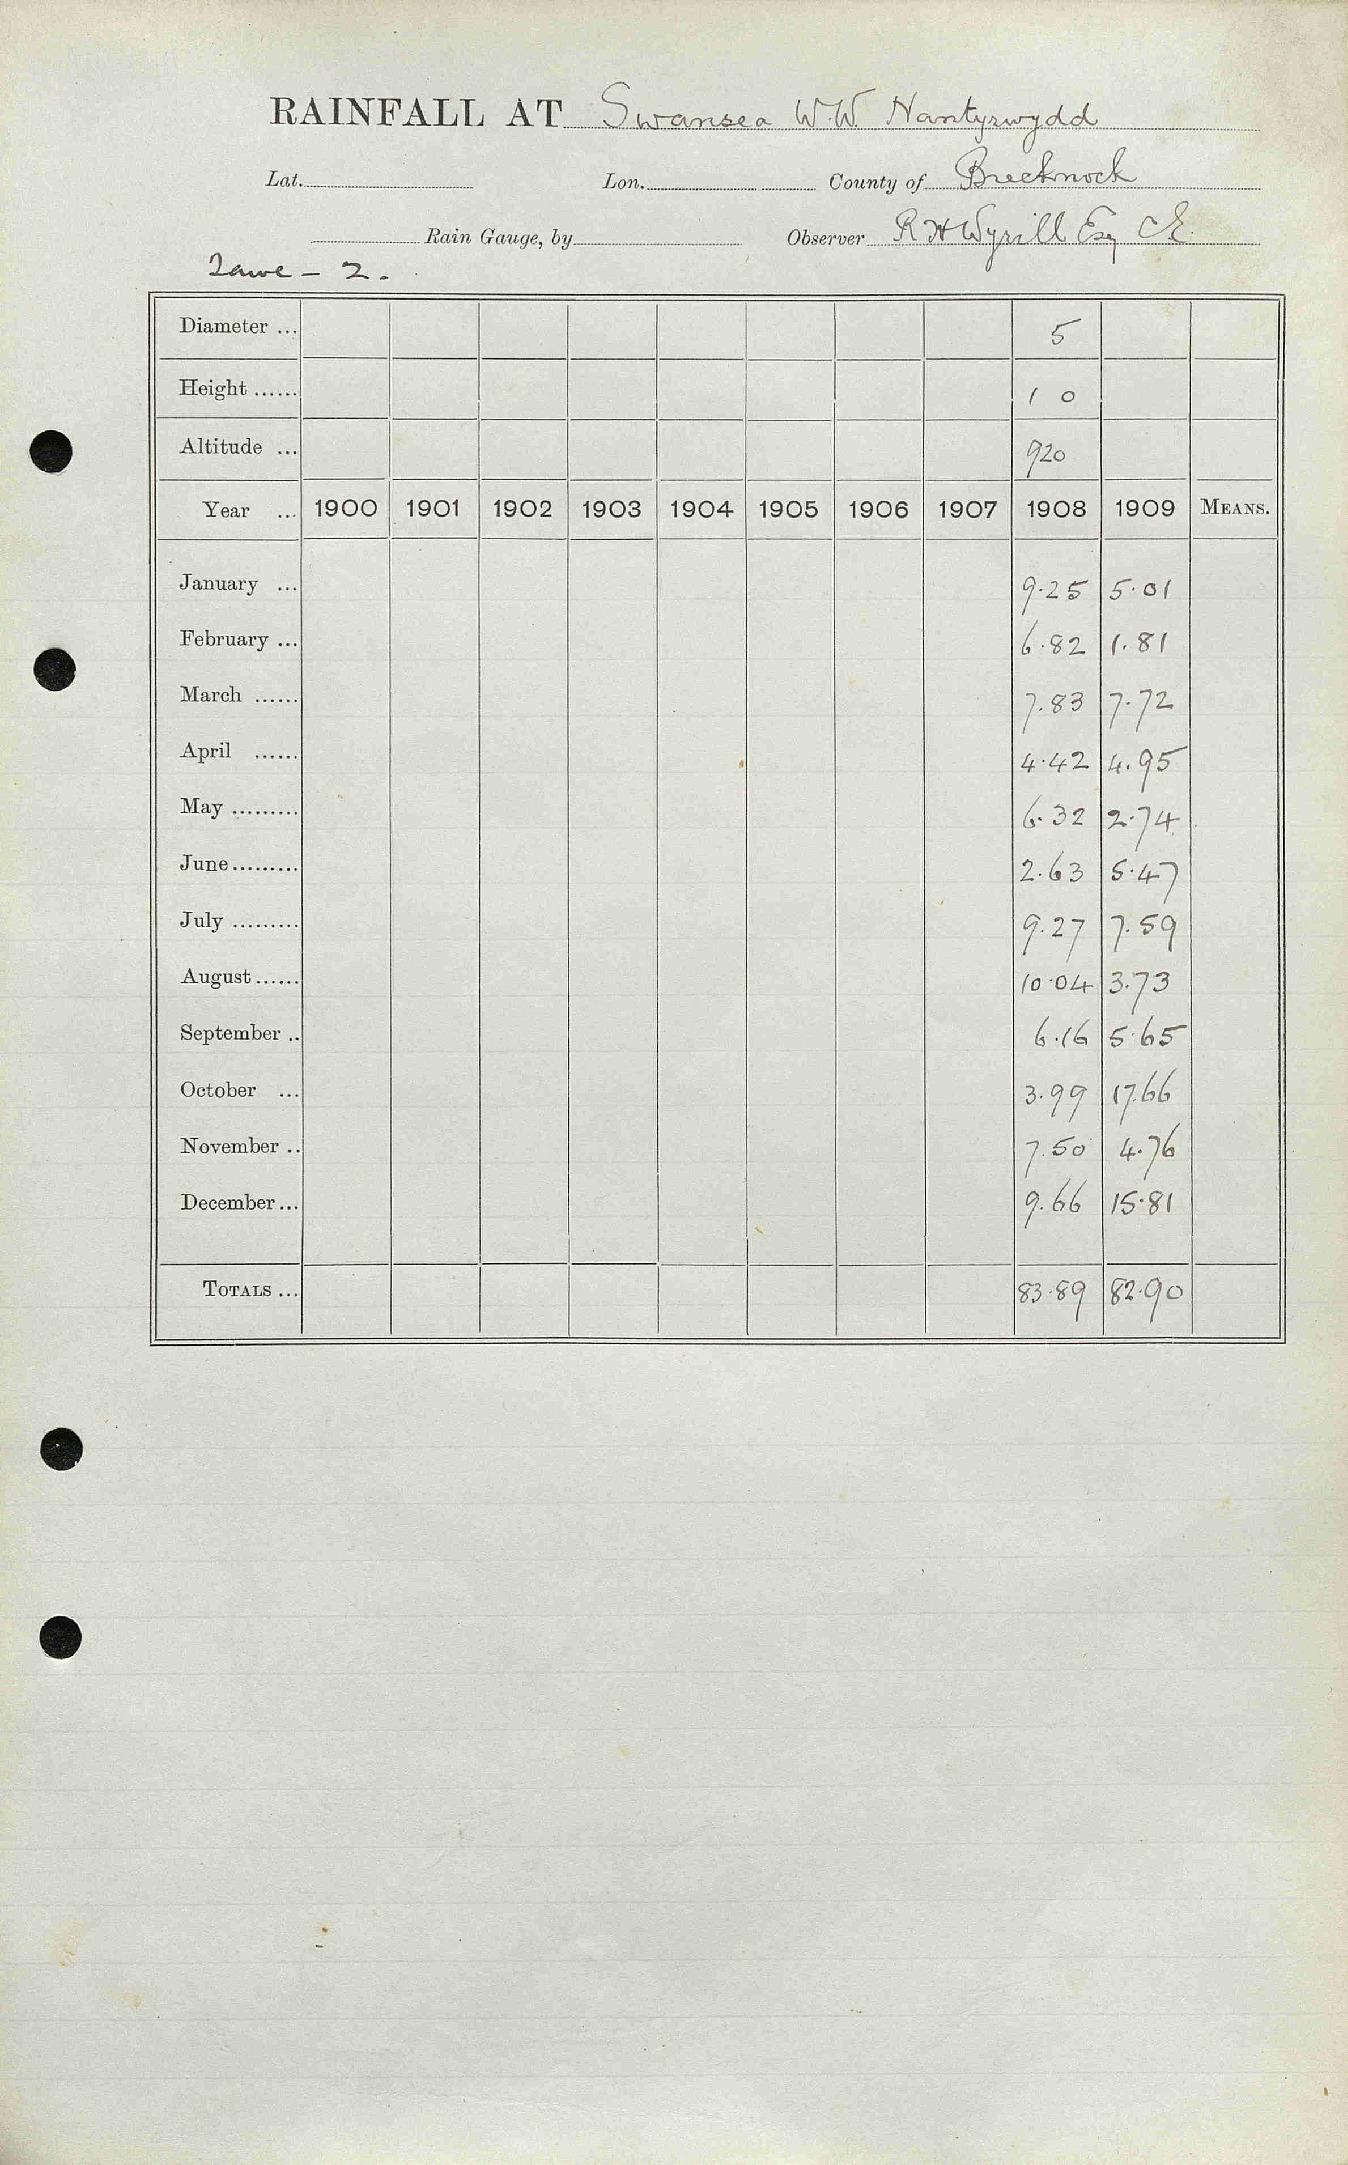 RAINFALL AT Swansea W.W. Nantyrwydd
Lat. Lon. County of Brecknock
Rain Gauge, by Observer R H Wyrill Esq CE
Tawe - 2.
Diameter ... 5
Height ...... 1 0
Altitude ... 920
Year ... 1900 1901 1902 1903 1904 1905 1906 1907 1908 1909 MEANS.
January ... 9.25 5.01
February ... 6.82 1.81
March ...... 7.83 7.72
April ...... 4.42 4.95
May ......... 6.32 2.74
June ......... 2.63 5.47
July ......... 9.27 7.59
August ...... 10.04 3.73
September .. 6.16 5.65
October ... 3.99 17.66
November .. 7.50 4.76
December ... 9.66 15.81
TOTALS ... 83.89 82.90